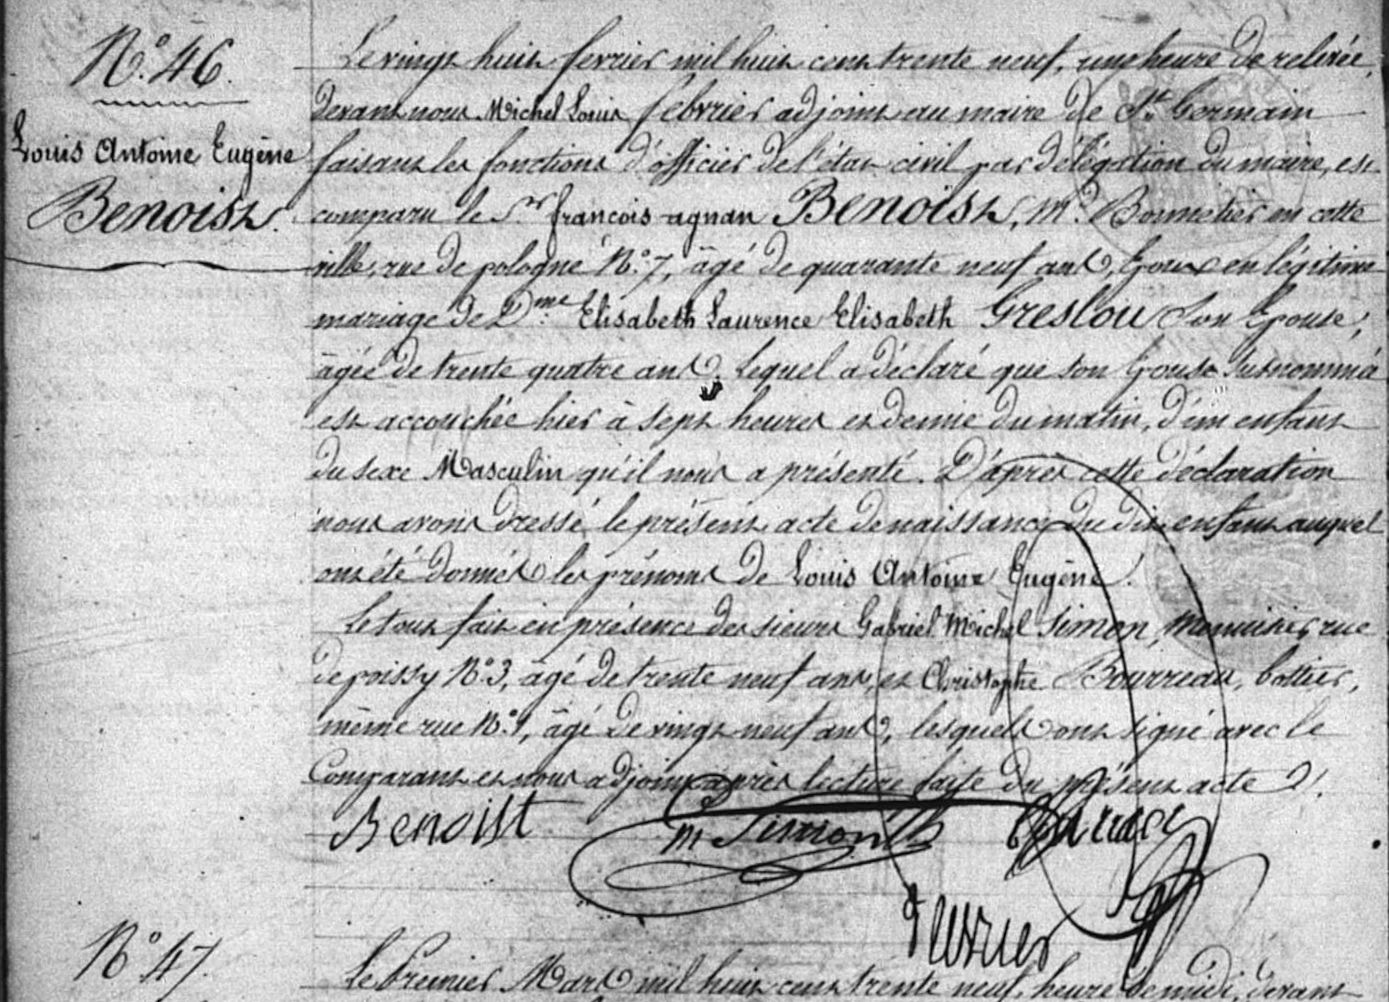 N.° 46.
Louis Antoine Eugène
Benoist.
Le vingt huit fevrier mil huit cent trente neuf, une heure de relevée,
devant nous Michel Louis febvrier adjoint au maire de St. Germain
faisant les fonctions d'officier de l'état civil par délégation du maire, est
comparu le Sr. françois agnan Benoist, Md. Bonnetier en cette
ville, rue de pologne N.° 7, âgé de quarante neuf ans, Epoux en légitime
mariage de Dme. Elisabeth Laurence Elisabeth Greslou son Epouse,
âgée de trente quatre ans, Lequel a déclaré que son Epouse susnommée
est accouchée hier à sept heures et demie du matin, d'un enfant
du sexe Masculin qu'il nous a présenté. D'après cette déclaration
nous avons dressé le présent acte de naissance du dit enfant auquel
ont été donnés les prénoms de Louis Antoine Eugène.
Le tout fait en présence des sieurs Gabriel Michel Simon, Menuisier rue
de poissy N.° 3, âgé de trente neuf ans, et Christophe Bourreau, bottier,
même rue N.° 1, âgé de vingt neuf ans, lesquels ont signé avec le
Comparant et nous adjoint après lecture faite du présent acte
Benoist m Simon
fevrier
N° 47.
Le Premier Mars mil huit cent trente neuf, heure de midi, devant